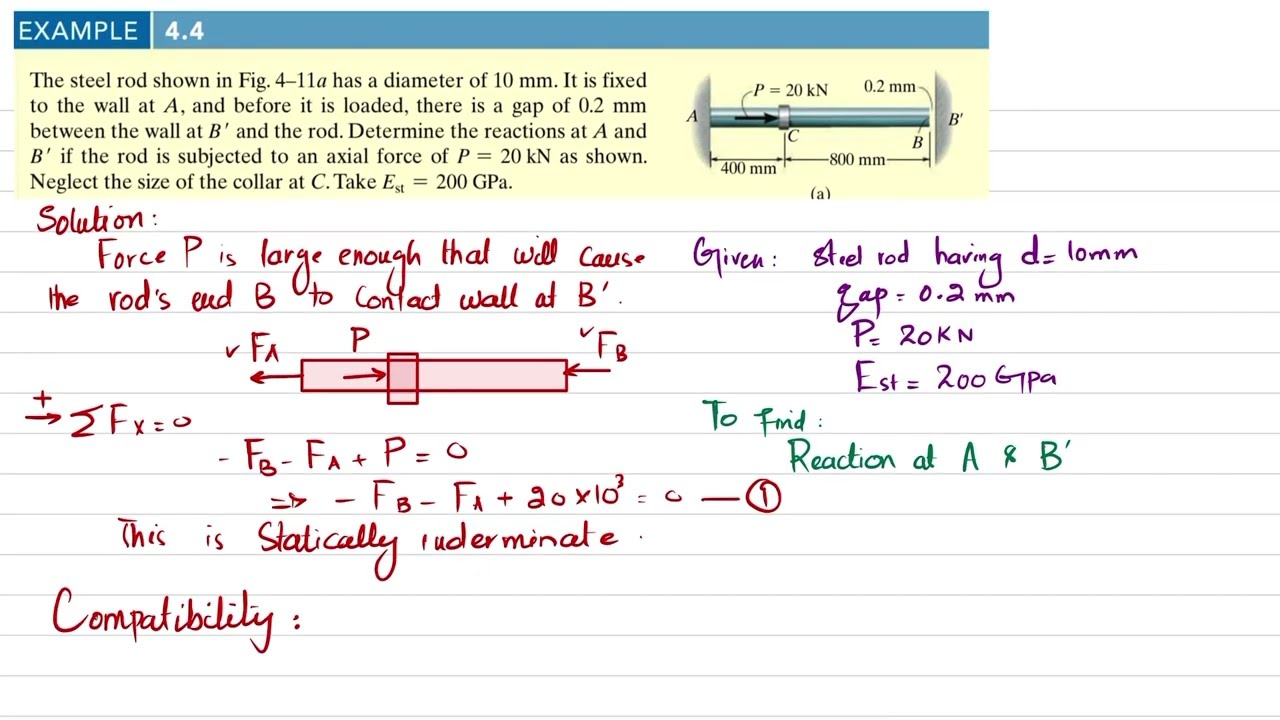 EXAMPLE 4.4
The steel rod shown in Fig. 4–11a has a diameter of 10 mm. It is fixed
to the wall at A, and before it is loaded, there is a gap of 0.2 mm
between the wall at B′ and the rod. Determine the reactions at A and
B′ if the rod is subjected to an axial force of P = 20 kN as shown.
Neglect the size of the collar at C. Take Est = 200 GPa.
P = 20 kN
0.2 mm
A
B′
C
B
400 mm
800 mm
(a)
Solution:
Force P is large enough that will cause
the rod's end B to contact wall at B'.
FA P FB
+
→ ΣFx = 0
- FB - FA + P = 0
=> - FB - FA + 20 × 10³ = 0 — ①
This is Statically inderminate.
Compatibility:
Given: steel rod having d = 10mm
gap = 0.2 mm
P = 20KN
Est = 200 Gpa
To Find:
Reaction at A & B'